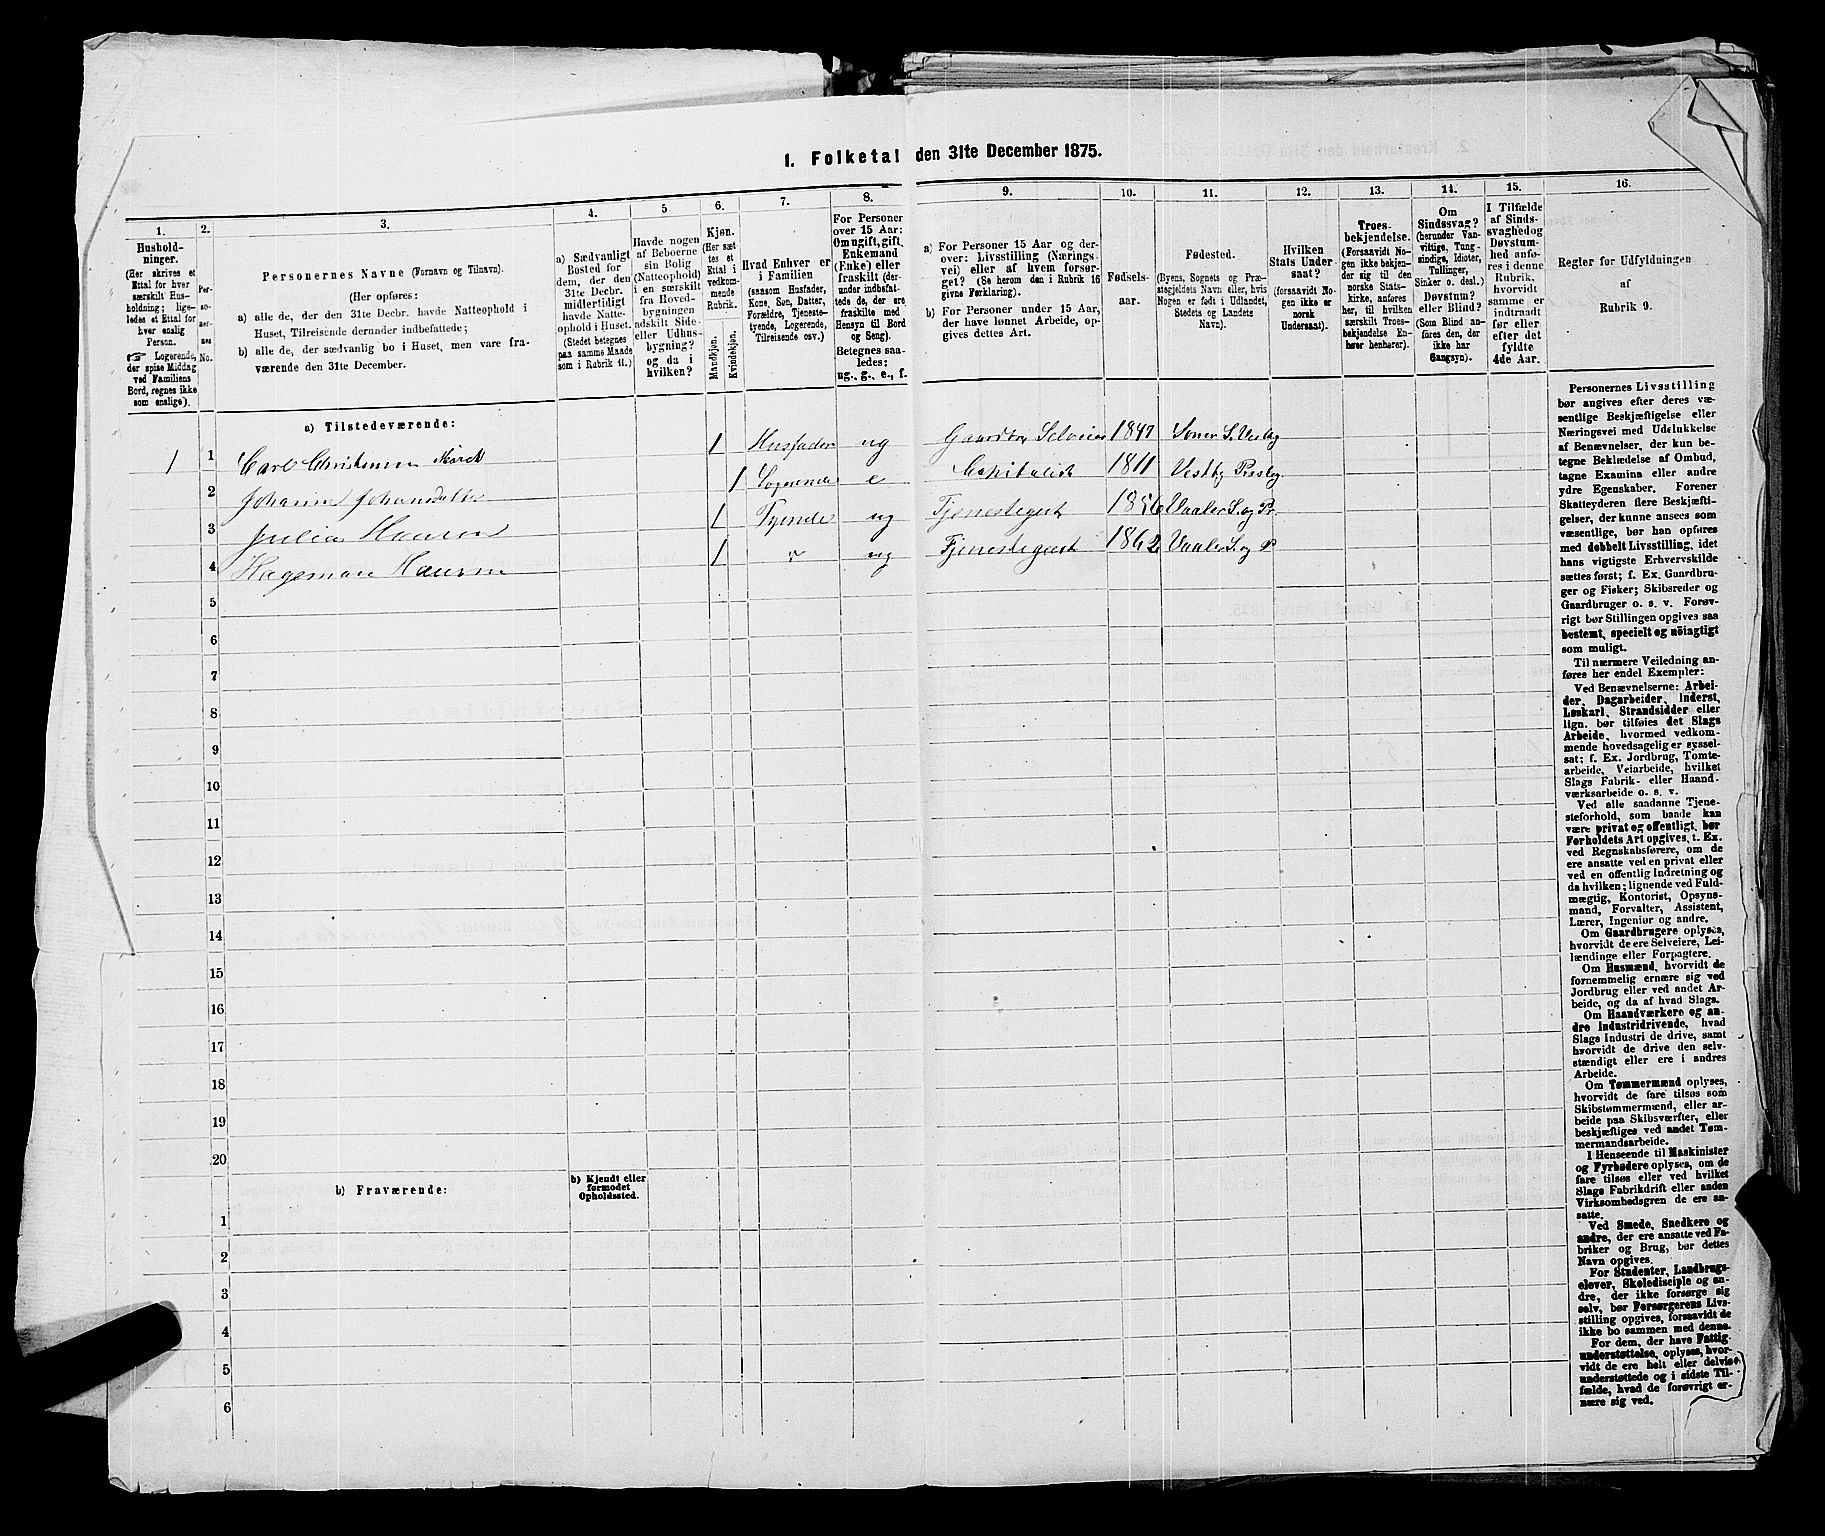 1. Folketal den 31te December 1875.
1. 2. 3. 4. 5 6. 7. 8. 9. 10. 11. 12. 13. 14. 15. 16.
Hushold-
ninger.
(Her skrives et
Ettal for hver
særskilt Hus-
holdning; lige-
ledes et Ettal for
hver enslig
Person.
☞ Logerende,
der spise Middag
ved Familiens
Bord, regnes ikke
som enslige).
Per-
so-
ner-
nes
No.
Personernes Navne (Fornavn og Tilnavn).
(Her opføres:
a) alle de, der den 31te Decbr. havde Natteophold i
Huset, Tilreisende derunder indbefattede;
b) alle de, der sædvanlig bo i Huset, men vare fra-
værende den 31te December.
a) Sædvanligt
Bosted for
dem, der den
31te Decbr.
midlertidigt
havde Natte-
ophold i Huset.
(Stedet betegnes
paa samme Maade
som i Rubrik 11.)
Havde nogen
af Beboerne
sin Bolig
(Natteophold)
i en særskilt
fra Hoved-
bygningen
adskilt Side-
eller Udhus-
bygning?
og da i
hvilken?
Kjøn.
(Her sæt-
tes et
Ettal i
vedkom-
mende
Rubrik.
Mandkjøn.
Kvindekjøn.
Hvad Enhver er
i Familien
(saasom Husfader,
Kone, Søn, Datter,
Forældre, Tjeneste-
tyende, Logerende,
Tilreisende osv.)
For Personer
over 15 Aar:
Om ugift, gift,
Enkemand
(Enke) eller
fraskilt (der-
under indbefat-
tede de, der ere
fraskilte med
Hensyn til Bord
og Seng).
Betegnes saa-
ledes:
ug., g., e., f.
a) For Personer 15 Aar og der-
over: Livsstilling (Nærings-
vei) eller af hvem forsør-
get? (Se herom den i Rubrik 16
givne Forklaring).
b) For Personer under 15 Aar,
der have lønnet Arbeide, op-
gives dettes Art.
Fødsels-
aar.
Fødested.
(Byens, Sognets og Præ-
stegjeldets Navn eller, hvis
Nogen er født i Udlandet,
Stedets og Landets
Navn).
Hvilken
Stats Under-
saat?
(forsaavidt No-
gen ikke er
norsk
Undersaat).
Troes-
bekjendelse.
(Forsaavidt No-
gen ikke bekjen-
der sig til den
norske Stats-
kirke, anføres
her, til hvilken
særskilt Troes-
bekjendelse En-
hver henhører).
Om
Sindssvag?
(herunder Van-
vittige, Tung-
sindige, Idioter,
Tullinger,
Sinker o. desl.)
Døvstum?
eller Blind?
(Som Blind an-
føres den, der
ikke har
Gangsyn).
I Tilfælde
af Sinds-
svaghed og
Døvstum-
hed anfø-
res i denne
Rubrik,
hvorvidt
samme er
indtraadt
før eller
efter det
fyldte
4de Aar.
Regler for Udfyldningen
af
Rubrik 9.
a) Tilstedeværende:
1 1 Carl Christensen Mørck 1 Husfader ug Gaardbr. Selveier 1847 Soner S. Vestby
2 Johanne Johansdatter 1 Logerende e Capitalist 1811 Vestby Præsteg
3 Julia Hansen 1 Tyende ug Tjenestegut 1856 Vaaler S. og Pr.
4 Hageman Hansen 1 " ug Tjenestegut 1862 Vaaler S. og P
5
6
7
8
9
10
11
12
13
14
15
16
17
18
19
20
b) Fraværende:
b) Kjendt eller
formodet
Opholdssted.
1
2
3
4
5
6
Personernes Livsstilling
bør angives efter deres væ-
sentlige Beskjæftigelse eller
Næringsvei med Udelukkelse
af Benævnelser, der kun be-
tegne Beklædelse af Ombud,
tagne Examina eller andre
ydre Egenskaber. Forener
Skatteyderen flere Beskjæfti-
gelser, der kunne ansees som
væsentlige, bør han opføres
med dobbelt Livsstilling, idet
hans vigtigste Erhvervskilde
sættes først; f. Ex. Gaardbru-
ger og Fisker; Skibsreder og
Gaardbruger o. s. v. Forøv-
rigt bør Stillingen opgives saa
bestemt, specielt og nøiagtigt
som muligt.
Til nærmere Veiledning an-
føres her endel Exempler:
Ved Benævnelserne: Arbei-
der, Dagarbeider, Inderst,
Løskarl, Strandsidder eller
lign. bør tilføies det Slags
Arbeide, hvormed vedkom-
mende hovedsagelig er syssel-
sat; f. Ex. Jordbrug, Tomte-
arbeide, Veiarbeide, hvilket
Slags Fabrik- eller Haand-
værksarbeide o. s. v.
Ved alle saadanne Tjene-
steforhold, som baade kan
være privat og offentligt, bør
Forholdets Art opgives, t. Ex.
ved Regnskabsførere, om de
ere ansatte ved en privat eller
ved en offentlig Indretning og
da hvilken; lignende ved Fuld-
mægtig, Kontorist, Opsyns-
mand, Forvalter, Assistent,
Lærer, Ingeniør og andre.
Om Gaardbrugere oplyses,
hvorvidt de ere Selveiere, Lei-
lændinge eller Forpagtere.
Om Husmænd, hvorvidt de
fornemmelig ernære sig ved
Jordbrug eller ved andet Ar-
beide, og da af hvad Slags.
Om Haandværkere og an-
dre Industridrivende, hvad
Slags Industri de drive, samt
hvorvidt de drive den selv-
stændigt eller ere i andres
Arbeide.
Om Tømmermænd oplyses,
hvorvidt de fare tilsøs som
Skibstømmermænd, eller ar-
beide paa Skibsværfter, eller
beskjæftiges ved andet Tøm-
mermandsarbeide.
I Henseende til Maskinister
og Fyrbødere oplyses, om de
fare tilsøs eller ved hvilket
Slags Fabrikdrift eller anden
Virksomhedsgren de ere an-
satte.
Ved Smede, Snedkere og
andre, der ere ansatte ved Fa-
briker og Brug, bør dettes
Navn opgives.
For Studenter, Landbrugs-
elever, Skoledisciple og an-
dre, der ikke forsørge sig
selv, bør Forsørgerens Livs-
stilling opgives, forsaavidt de
ikke bo sammen med denne.
For dem, der have Fattig-
understøttelse, oplyses, hvor-
vidt de ere helt eller delvise
understøttede og i sidste Til-
fælde, hvad de forøvrigt er-
nære sig ved.